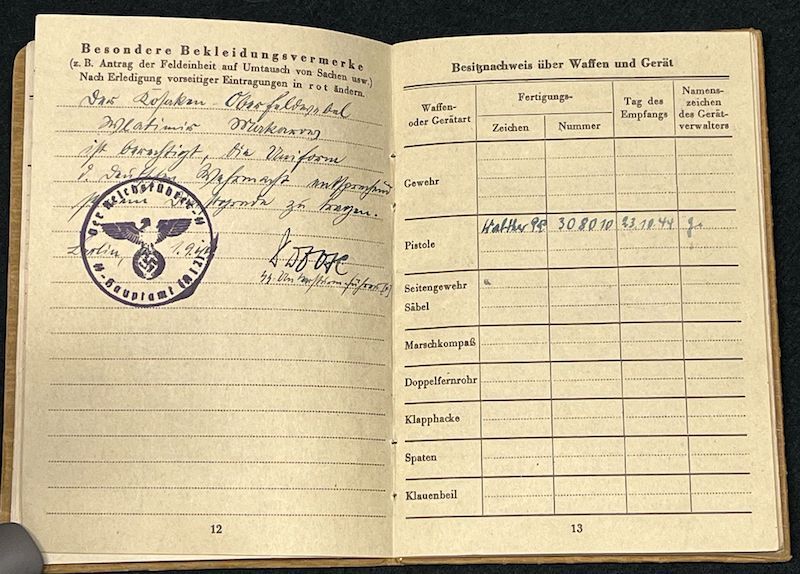 Besondere Bekleidungsvermerke
(z. B. Antrag der Feldeinheit auf Umtausch von Sachen usw.)
Nach Erledigung vorseitiger Eintragungen in rot ändern.
Der Kosaken-Oberfeldwebel
Wladimir Makarow
ist berechtigt, die Uniform
d. Deutschen Wehrmacht entsprechend
Dienstgrade zu tragen.
Der Reichsführer-SS
SS-Hauptamt
Berlin, 1.9.
12
Besitznachweis über Waffen und Gerät
Waffen- oder Gerätart
Fertigungs-
Zeichen
Nummer
Tag des Empfangs
Namens-zeichen des Gerät-verwalters
Gewehr
Pistole
Walther 308010 23.10.44
Seitengewehr
Säbel
Marschkompaß
Doppelfernrohr
Klapphacke
Spaten
Klauenbeil
13